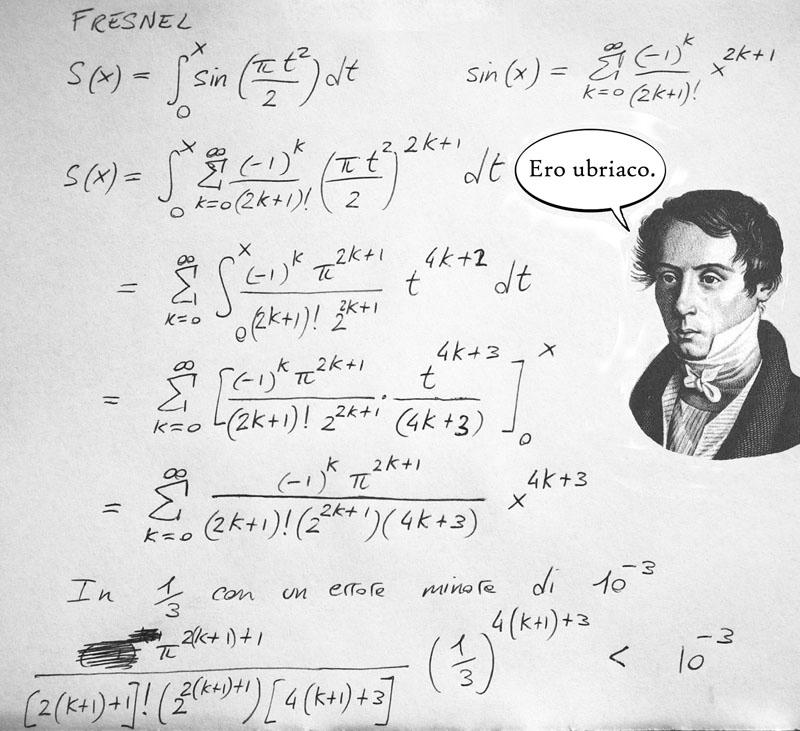 FRESNEL
S(x) = ∫₀ˣ sin (πt²/2) dt
sin(x) = ∑_{k=0}^{∞} (-1)^k/(2k+1)! x^{2k+1}
S(x) = ∫₀ˣ ∑_{k=0}^{∞} (-1)^k/(2k+1)! (πt²/2)^{2k+1} dt
Ero ubriaco.
= ∑_{k=0}^{∞} ∫₀ˣ (-1)^k π^{2k+1}/((2k+1)! 2^{2k+1}) t^{4k+2} dt
= ∑_{k=0}^{∞} [(-1)^k π^{2k+1}/((2k+1)! 2^{2k+1}) · t^{4k+3}/(4k+3)]₀ˣ
= ∑_{k=0}^{∞} (-1)^k π^{2k+1}/((2k+1)!(2^{2k+1})(4k+3)) x^{4k+3}
In 1/3 con un errore minore di 10^{-3}
π^{2(k+1)+1}/([2(k+1)+1]!(2^{2(k+1)+1})[4(k+1)+3]) (1/3)^{4(k+1)+3} < 10^{-3}